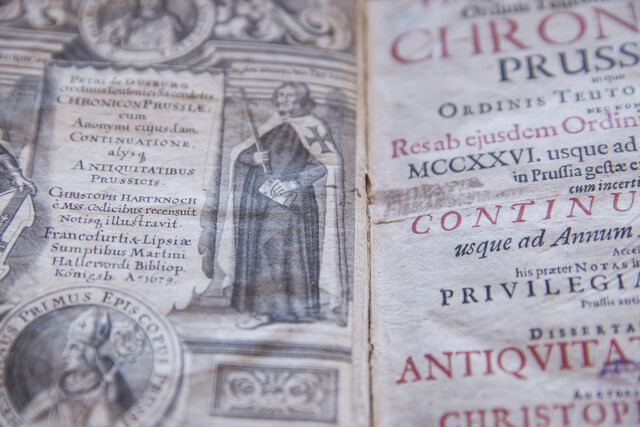 Petri de Dusburg
ordinis Teutonici Sacerdotis
CHRONICON PRUSSIÆ,
cum
Anonymi cujusdam
CONTINUATIONE,
alysq
ANTIQUITATIBUS
PRUSSICIS.
CHRISTOPH HARTKNOCH
è Mss. Codicibus recensuit
Notisq illustravit.
Francofurti & Lipsiæ
Sumptibus Martini
Hallervordi Bibliop.
Königsb. Aº 1679.
PRIMUS EPISCOPUS
Ordinis
CHRON
PRUSS
ORDINIS TEUTO
NECNO
Res ab ejusdem Ordini
MCCXXVI. usque ad
in Prussia gestæ
cum incerti
CONTINU
usque ad Annum
Acce
his præter NOTAS
PRIVILEGIA
Prussis anti
DISSERTA
ANTIQVITAT
AUCTORE
CHRISTOP